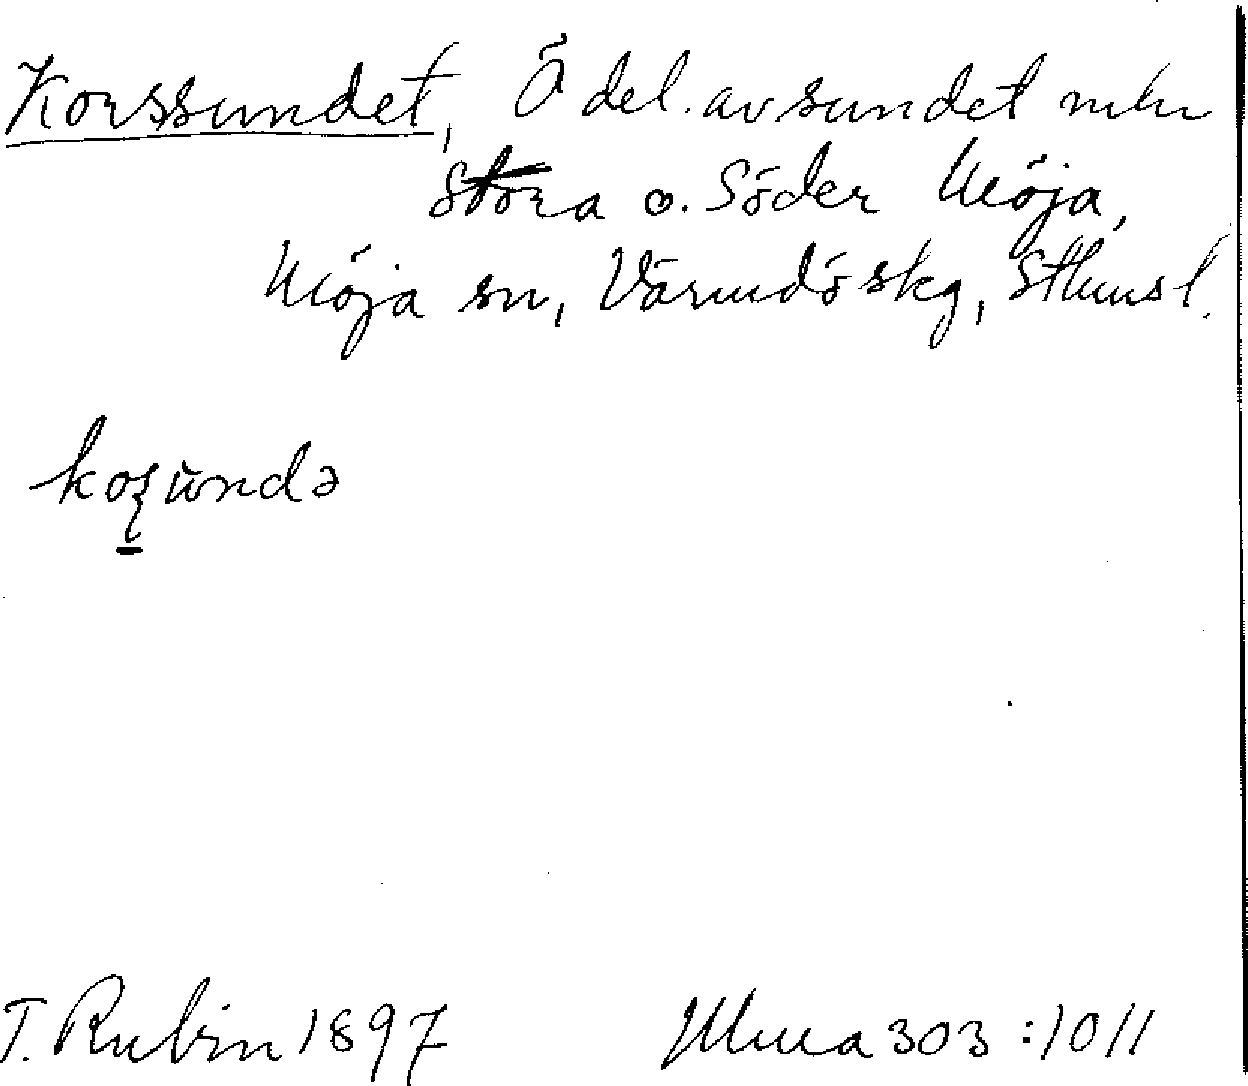 Korssundet, Ö del. av sundet mln
Stora o. Söder Möja,
Möja sn, Värmdö skg, Sthms l.
koʂùndə
T. Rubin 1897 Ulma 303:1011